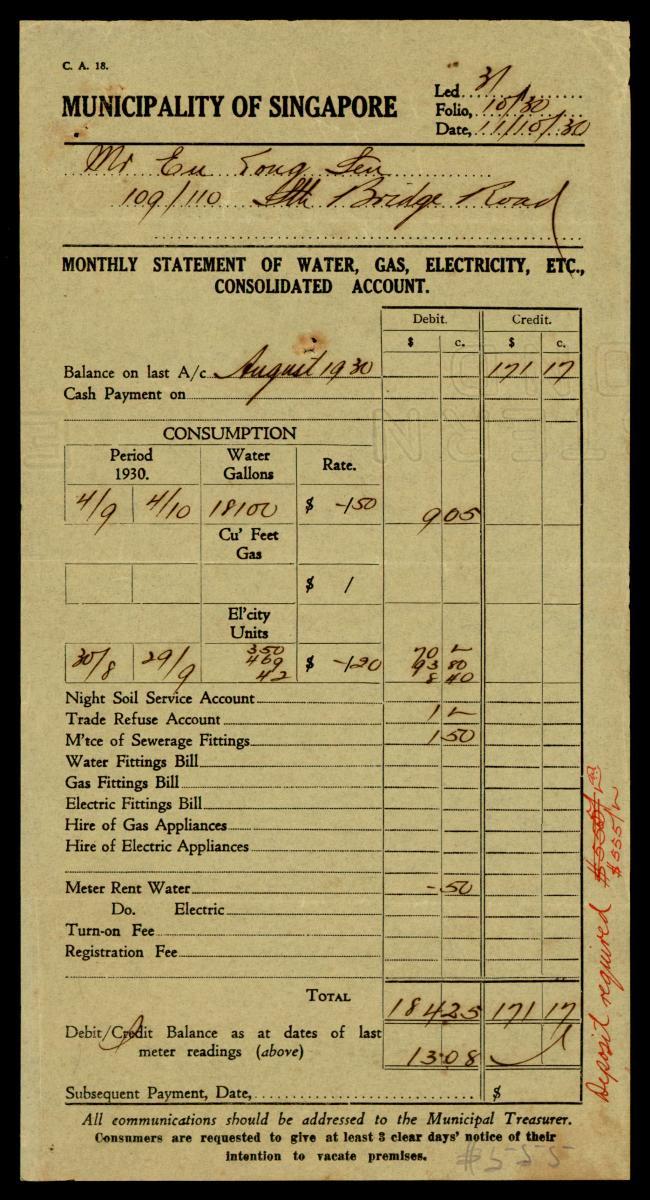 C. A. 18.
MUNICIPALITY OF SINGAPORE
Led. 3/
Folio, 10/30
Date, 11/10/30
Mr Eu Tong Sen
109/110 Sth Bridge Road
MONTHLY STATEMENT OF WATER, GAS, ELECTRICITY, ETC.,
CONSOLIDATED ACCOUNT.
Debit. Credit.
$ c. $ c.
Balance on last A/c August 1930 171 17
Cash Payment on
CONSUMPTION
Period 1930. Water Gallons Rate.
4/9 4/10 18100 $ -/50 9 05
Cu' Feet
Gas
$ /
El'city
Units
30/8 29/9 350 $ -/20 70 -
469 93 80
42 8 40
Night Soil Service Account
Trade Refuse Account 1 -
M'tce of Sewerage Fittings 1 50
Water Fittings Bill
Gas Fittings Bill
Electric Fittings Bill
Hire of Gas Appliances
Hire of Electric Appliances
Meter Rent Water - 50
Do. Electric
Turn-on Fee
Registration Fee
TOTAL 184 25 171 17
Debit/Credit Balance as at dates of last
meter readings (above) 13 08
Subsequent Payment, Date, $
All communications should be addressed to the Municipal Treasurer.
Consumers are requested to give at least 3 clear days' notice of their
intention to vacate premises.
$555
Deposit required
$555/-